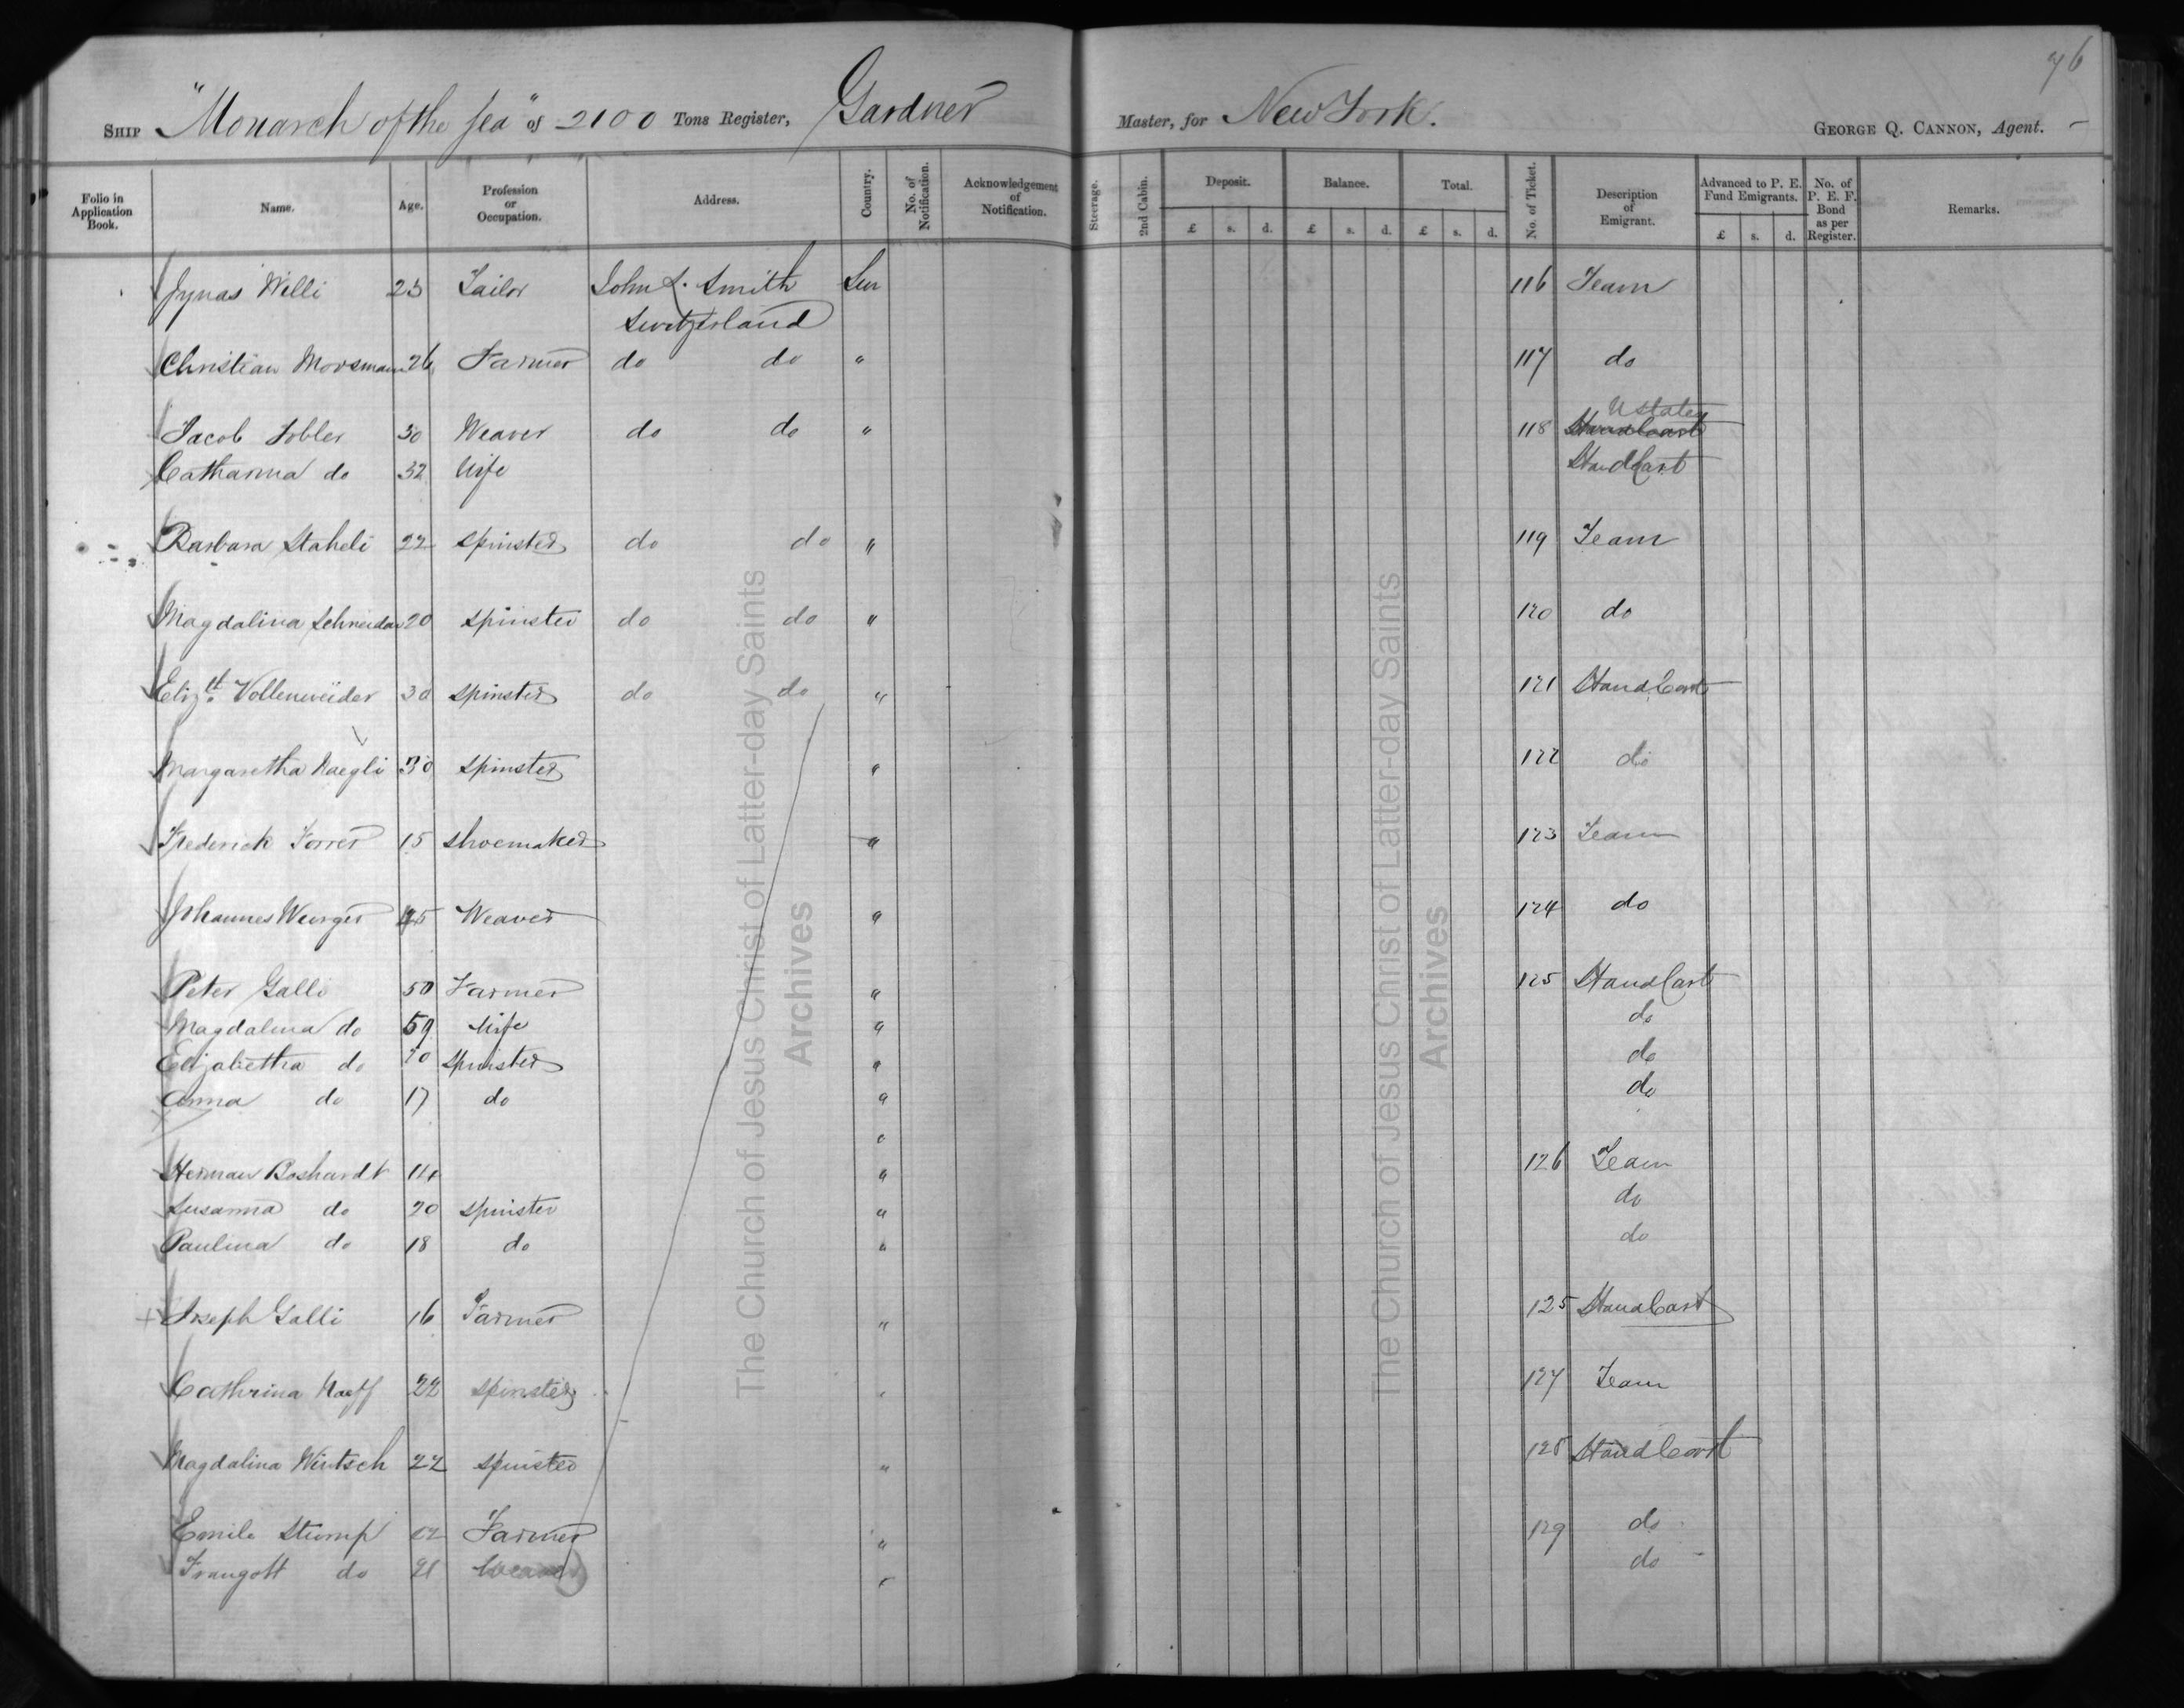 76
SHIP "Monarch of the Sea" of 2100 Tons Register, Gardner Master, for New York. GEORGE Q. CANNON, Agent.
Folio in Application Book. Name. Age. Profession or Occupation. Address. Country. No. of Notification. Acknowledgement of Notification. Steerage. 2nd Cabin. Deposit. Balance. Total. No. of Ticket. Description of Emigrant. Advanced to P. E. Fund Emigrants. No. of P. E. F. Bond as per Register. Remarks.
£ s. d. £ s. d. £ s. d. £ s. d.
Willi 23 Tailor John L. Smith 116 Team
Switzerland
Christian Mossmann 26 Farmer do do " 117 do
U States
Jacob Tobler 30 Weaver do do " 118 HandCart
Catharina do 32 Wife HandCart
Barbara Staheli 22 Spinster do do " 119 Team
Magdalina Schneider 20 Spinster do do " 120 do
Eliz.th Vollenweider 30 Spinster do do " 121 HandCart
Margaretha Naegli 30 Spinster " 122 do
Frederick Forrer 15 Shoemaker " 123 Team
Johannes Wenger Weaver " 124 do
Peter Galli 50 Farmer " 125 HandCart
Magdalina do 59 Wife " do
Elizabetha do 20 Spinster " do
Anna do 17 do " do
"
Herman Boshardt 14 " 126 Team
Susanna do 20 Spinster " do
Paulina do 18 do " do
Joseph Galli 16 Farmer " 125 HandCart
Cathrina Naeff 22 Spinster " 127 Team
Magdalina Wintsch 22 Spinster " 128 HandCart
Emile Stump Farmer " 129 do
Traugott do 21 Weaver " do
The Church of Jesus Christ of Latter-day Saints
Archives
The Church of Jesus Christ of Latter-day Saints
Archives